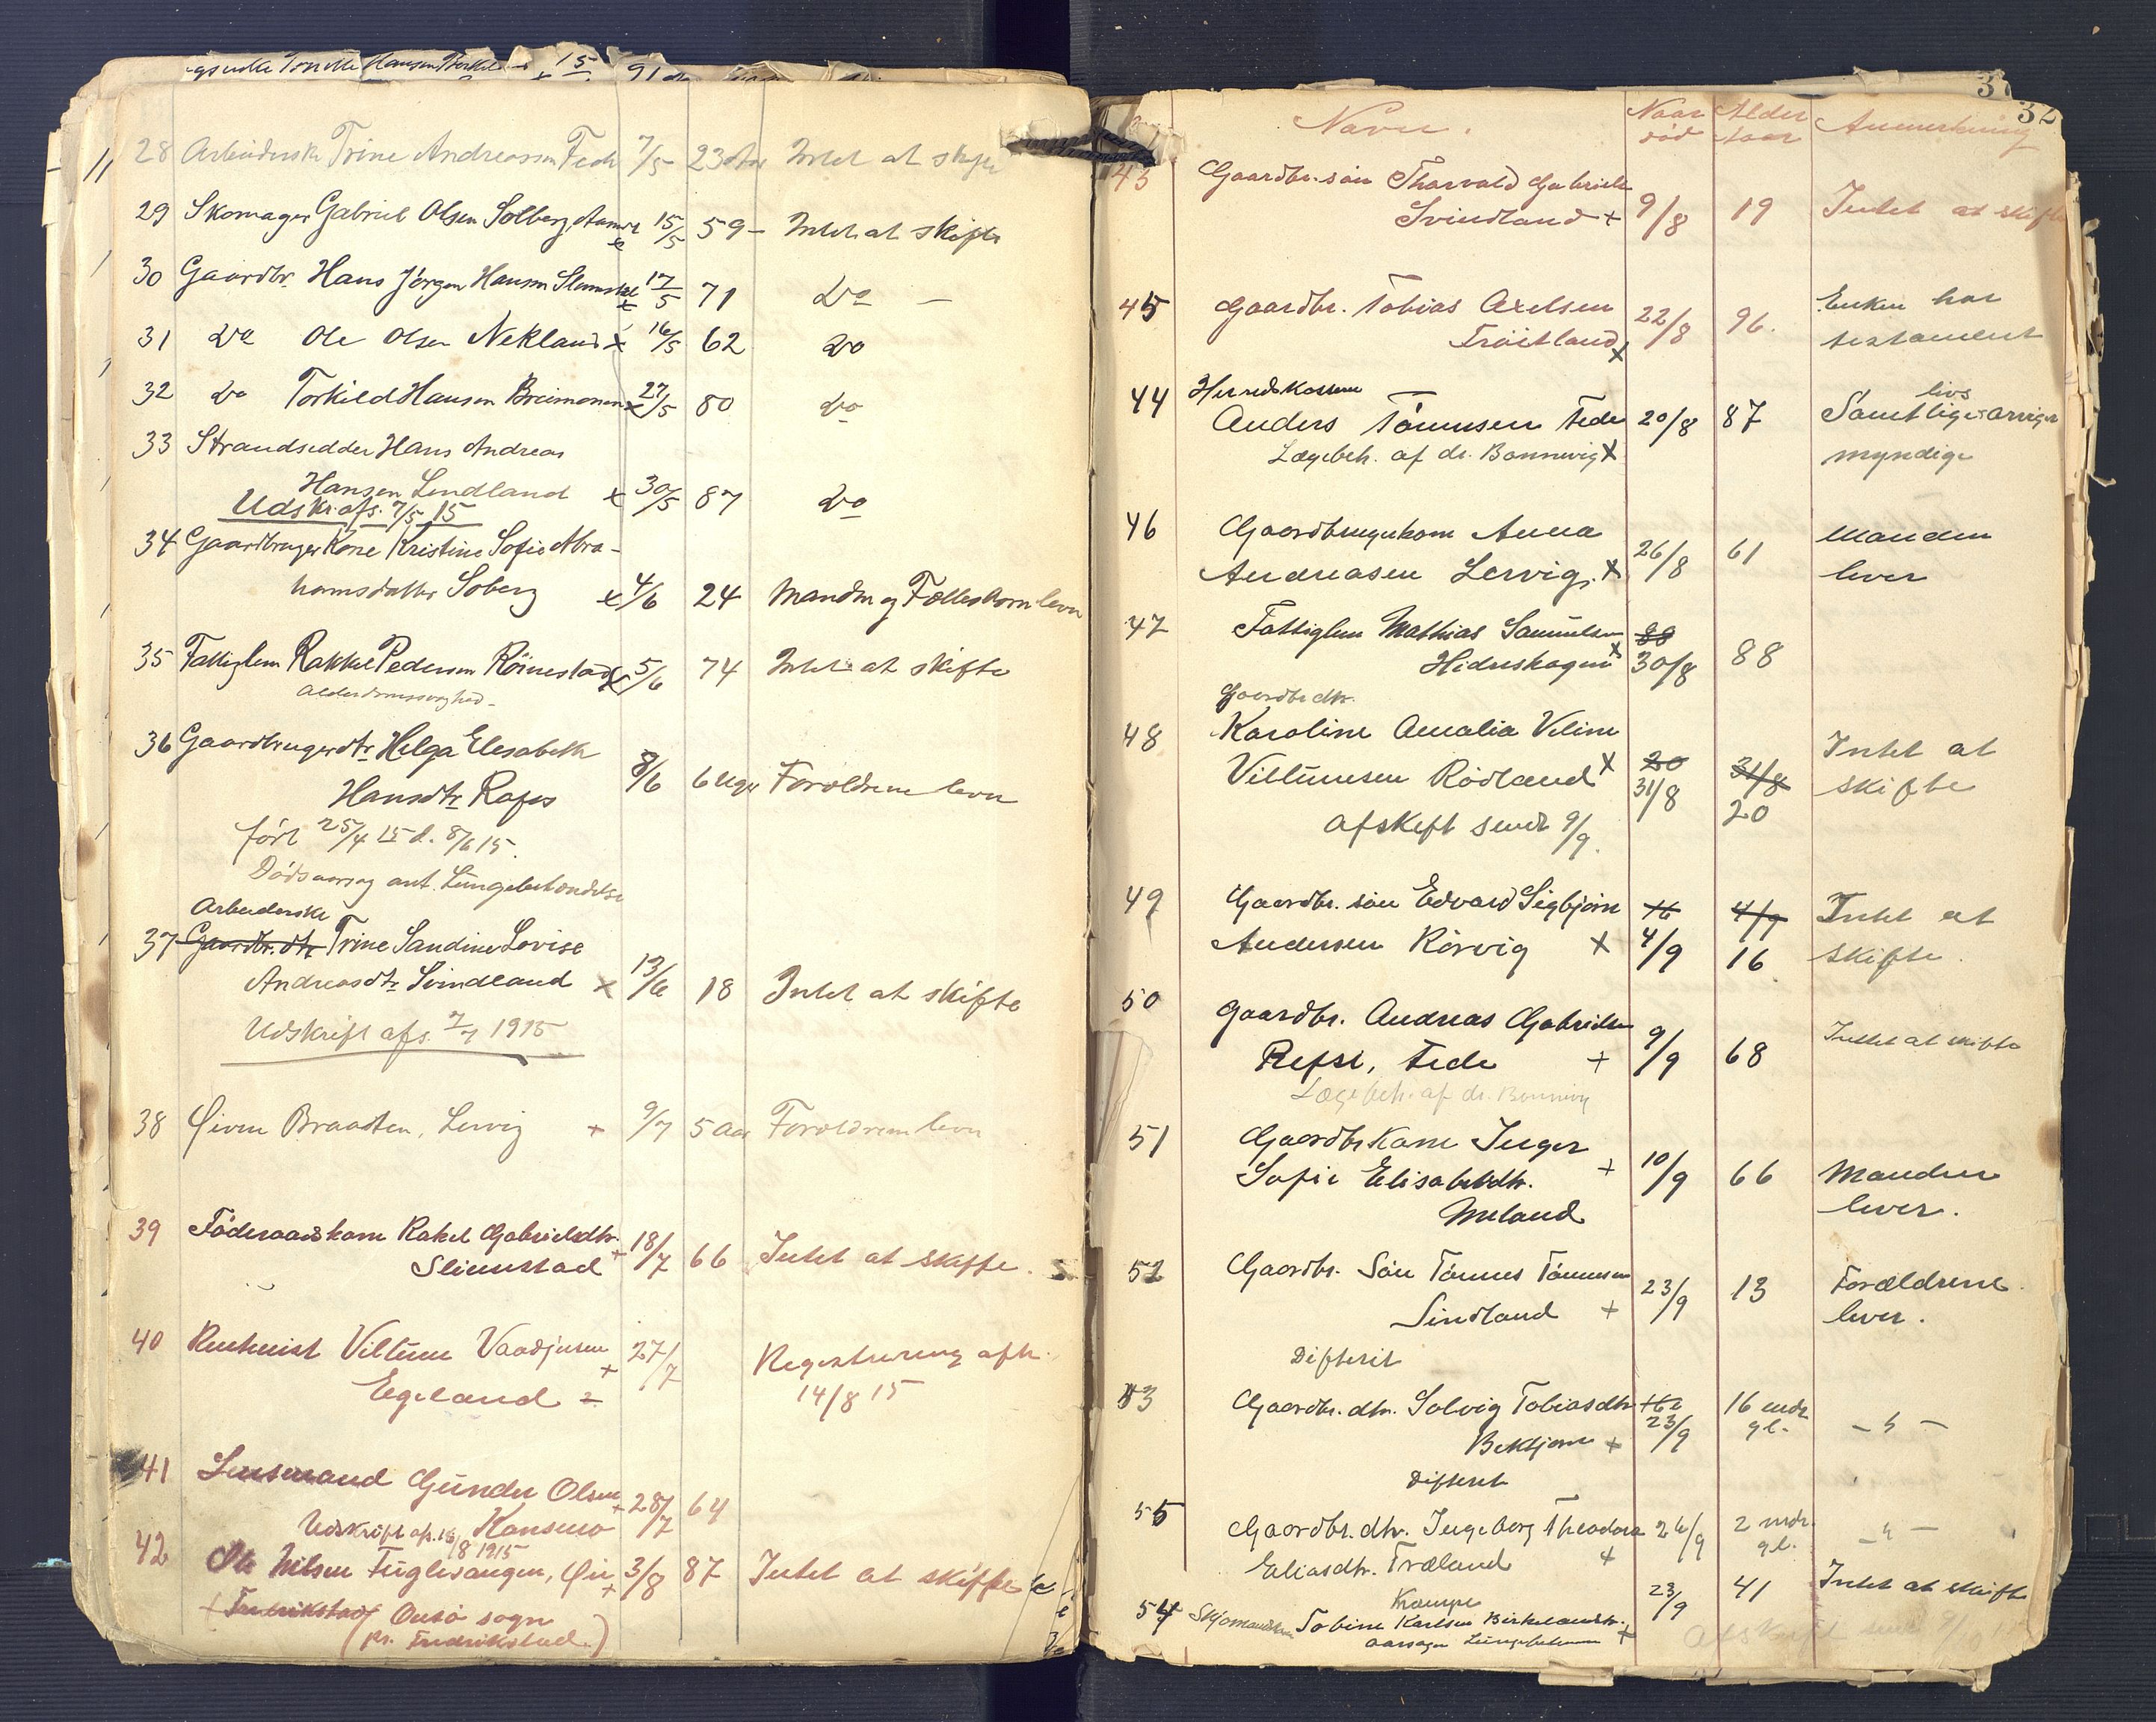 28 Arbeiderske Trine Andreassen Fede 7/5 23 Aar Intet at skifte
29 Skomager Gabriel Olsen Solberg, x 15/5 59 – Intet at skifte
30 Gaardbr. Hans Jörgen Hansen x 17/5 71 Do –
31 Do Ole Olsen Nekland x 16/5 62 Do
32 Do Torkild Hansen Breimonen x 27/5 80 Do
33 Strandsidder Hans Andreas
Hansen Lindland x 30/5 87 Do
Udskr. afs. 7/5 15
34 Gaardbruger Kone Kristine Sofie Abra-
hamsdatter Soberg x 4/6 24 Manden og Fællesbarn lever
35 Fattiglem Rakkel Pedersen Röinestad x 5/6 74 Intet at skifte
36 Gaardbrugerdtr Helga Elesabeth
Hansdtr Rafos 8/6 6 Uger Foroldrene lever
födt 25/4 15 d. 8/6 15.
Dödsaarsag ant. Lungebetendelse
Arbeiderske
37 Gaardbr. dtr Trine Sandine Lovise
Andreasdtr Svindland x 13/6 18 Intet at skifte
Udskrift afs. 7/7 1915
38 Öivin Braaten, Lervig + 9/7 5 Aar Foroldrene lever
39 Föderaadskone Rakel Gabrielsdtr.
Slimestad + 18/7 66 Intet at skifte.
40 Rentenist Viltum Vaadjusen + 27/7 Registrering afh.
Egeland 14/8 15
41 Lensmand Gunder Olsen + 28/7 64
Udskrift afs. 16/8 1915 Kansmo
42 Ole Nilsen Fuglevaugen, + 3/8 87 Intet at skifte
(Fredrikstad) Onsö sogn
(pr. Fredrikstad.)
32
Navn. Naar död Alder Aar Anmerkning
43 Gaardbr. sön Tharvald Gabrielsen
Svindland + 9/8 19 Intet at skifte
45 Gaardbr. Tobias Axelsen 22/8 96. Enken har
Tröitland x testament
44 Herredskasserer livs
Anders Tönnesen Fede 20/8 87 Samtlige arvinger
Lægebeh. af dr. Bonnevig x myndige
46 Gaardbrugerkone Anna 26/8 61 Manden
Andreasen Lervig. x lever
47 Fattiglem Mathias Samuelsen 88
Hidreskogen x 30/8 88
Gaardbr dtr.
48 Karoline Amalia Viline Intet at
Viltumsen Rödland x 20 31/8 skifte
31/8 20
Afskrift sendt 9/9.
49 Gaardbr. sön Edvard Sigbjörn 16 4/9 Intet at
Andersen Rörvig x 4/9 16 skifte.
50 Gaardbr. Andreas Gabrielsen
Refse, Fede + 9/9 68 Intet at skifte
Lægebeh. af dr. Bonnevig
51 Gaardbr Kone Inger
Sofie Elisabetdtr. + 10/9 66 Manden
Meland lever.
52 Gaardbr. Sön Tönnes Tönnesen 23/9 13 Forældrene
Sindland + lever.
Difterit
53 Gaardbr. dtr. Solvig Tobiasdtr 16 16 mdr
Bekkjom + 23/9 gl. – " –
Difterit
55 Gaardbr. dtr. Ingeborg Theodora 26/9 2 mdr. – " –
Eliasdtr. Træland + gl.
Kvampe
54 Tobine Karlsen Birkelandstr. + 23/9 41 Intet at skifte
aarsagen Lungebetennelse
Afskrift sendt 9/10